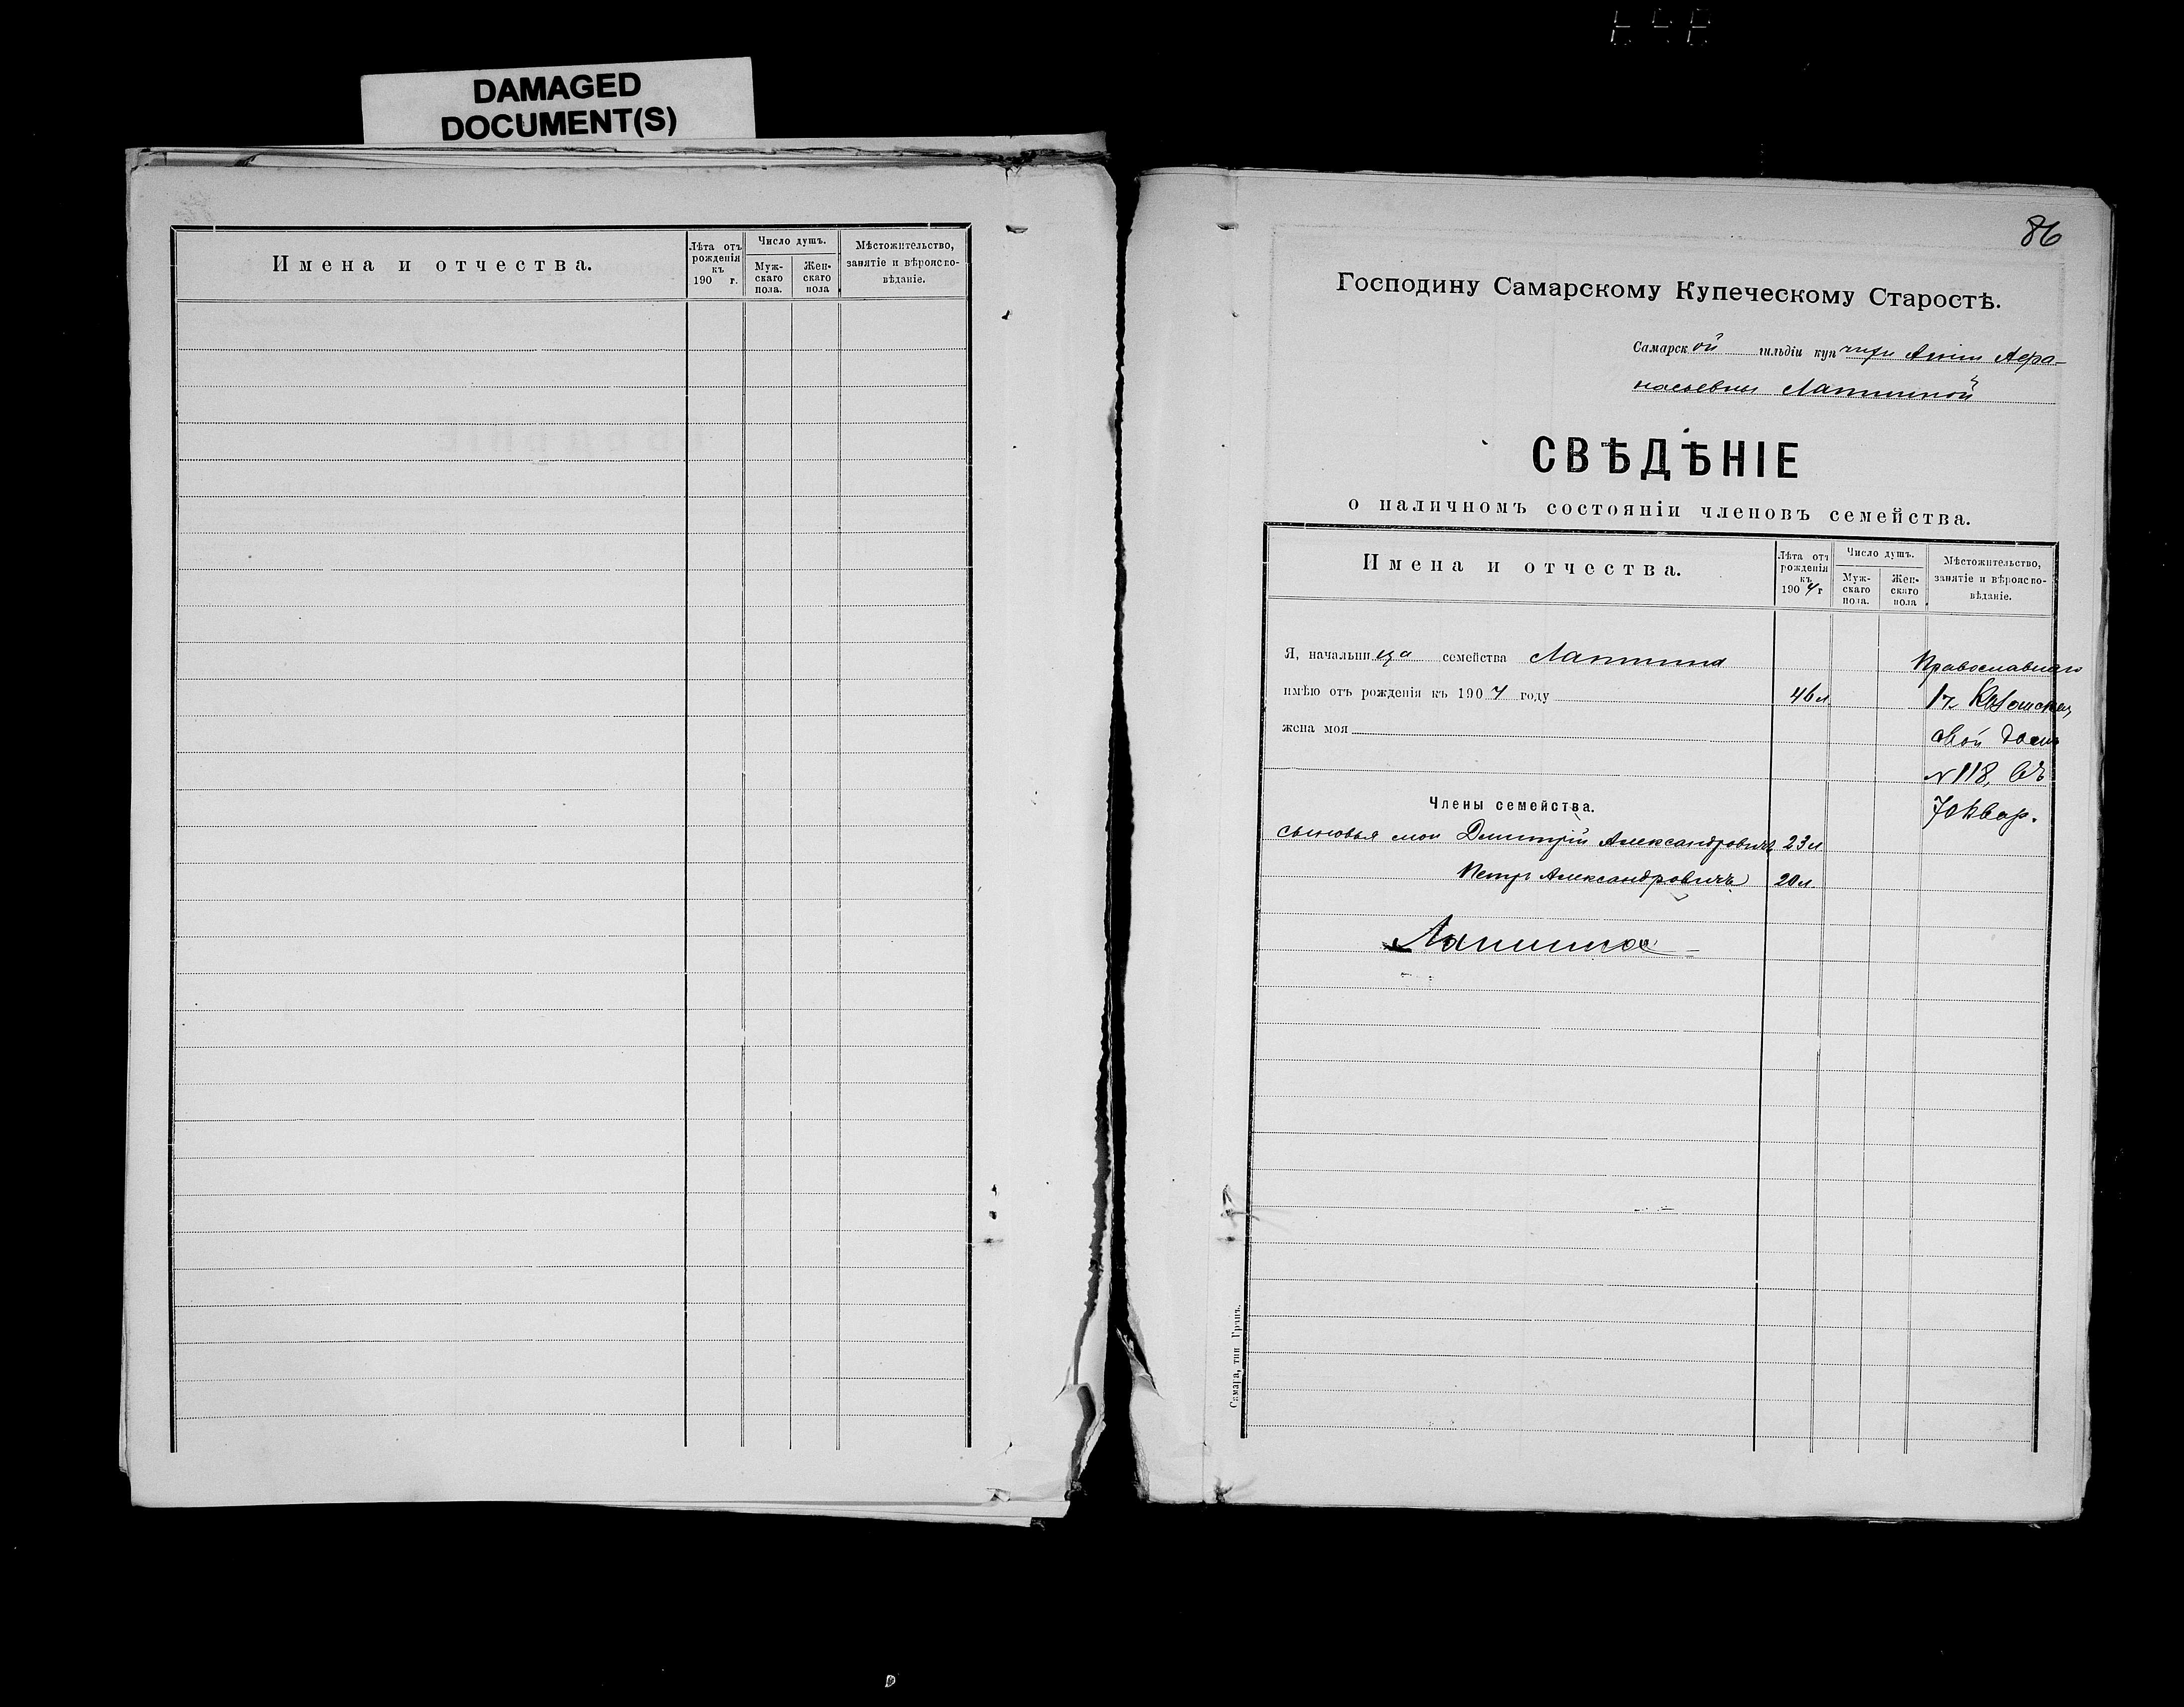 DAMAGED
DOCUMENT(S)
Имена и отчества.
Лѣта отъ рожденія къ 190 г.
Число душъ.
Мужскаго пола.
Женскаго пола
Мѣстожительство, занятіе и вѣроисповѣданіе.
86
Господину Самарскому Купеческому Старостѣ.
Самарской гильдіи купчихи Анны Афа-
насьевны Лапшиной
СВѢДѢНІЕ
о наличномъ состояніи членовъ семейства.
Имена и отчества.
Лѣта отъ рожденія къ 1904 г
Число душъ.
Мужскаго пола.
Женскаго пола
Мѣстожительство, занятіе и вѣроисповѣданіе.
Я, начальница семейства Лапшина
Православнаго
имѣю отъ рожденія къ 1904 году 46 л
жена моя свой домъ
№ 118, въ
Члены семейства.
70 квар.
сыновья мои Дмитрій Александровичъ 23 л
Петръ Александровичъ 20 л
Лапшина
Самара, тип. Гранъ.